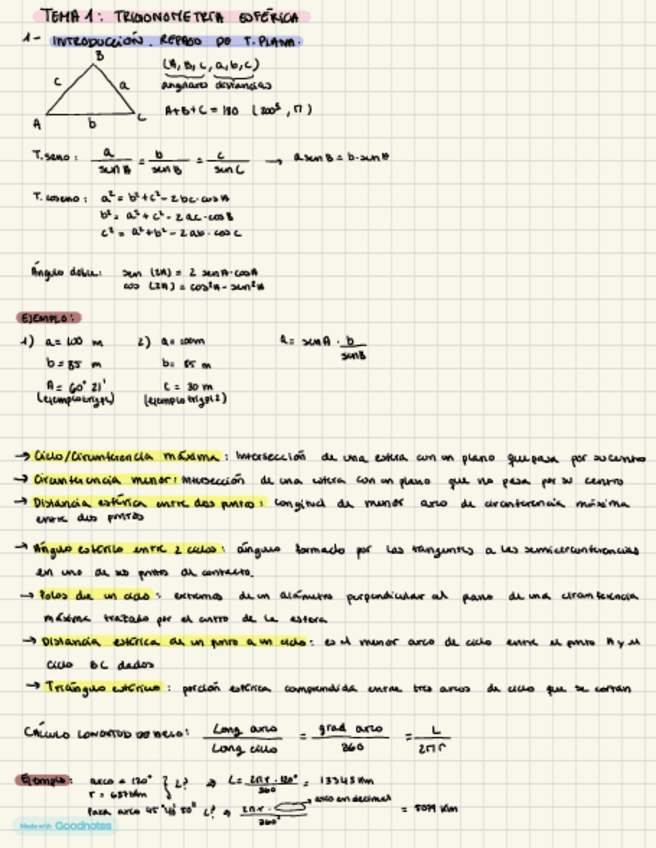 TEMA 1: TRIGONOMETRÍA ESFÉRICA
1- INTRODUCCIÓN. REPASO DE T. PLANA.
B
(A, B, C, a, b, c)
c a
angulares distancias
A+B+C = 180 (200ᵍ, π)
A b C
T. seno: a/senA = b/senB = c/senC → a senB = b·senA
T. coseno: a² = b²+c²-2bc·cosA
b² = a²+c²-2ac·cosB
c² = a²+b²-2ab·cosC
Ángulo doble: sen (2A) = 2 senA·cosA
cos (2A) = cos²A - sen²A
EJEMPLO:
1) a = 100 m 2) a = 100m a = senA · b/senB
b = 85 m b = 85 m
A = 60° 21' c = 30 m
(ejemplo trigpl) (ejemplo trigpl2)
→ Ciclo/Circunferencia máxima: Intersección de una esfera con un plano que pasa por su centro
→ Circunferencia menor: Intersección de una esfera con un plano que no pasa por su centro
→ Distancia esférica entre dos puntos: longitud de menor arco de circunferencia máxima
entre dos puntos
→ Ángulo esférico entre 2 ciclos: ángulo formado por las tangentes a las semicircunferencias
en uno de sus puntos de contacto.
→ Polos de un ciclo: extremos de un diámetro perpendicular al plano de una circunferencia
máxima tratado por el centro de la esfera
→ Distancia esférica de un punto a un ciclo: es el menor arco de ciclo entre el punto A y el
ciclo BC dados
→ Triángulo esférico: porción esférica comprendida entre tres arcos de ciclo que se cortan
CÁLCULO LONGITUD DE ARCO: Long arco/Long ciclo = grad arco/360 = L/2πr
Ejemplo: arco = 120° } L? → L = 2πr·120°/360 = 13343 Km
r = 6371Km
Para arco 45° 50'' L? → 2πr·/360° = 5079 Km
arco en decimal
Made with Goodnotes